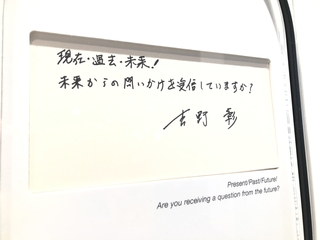 現在・過去・未来!
未来からの問いかけを受信していますか?
吉野 彰
Present/Past/Future!
Are you receiving a question from the future?